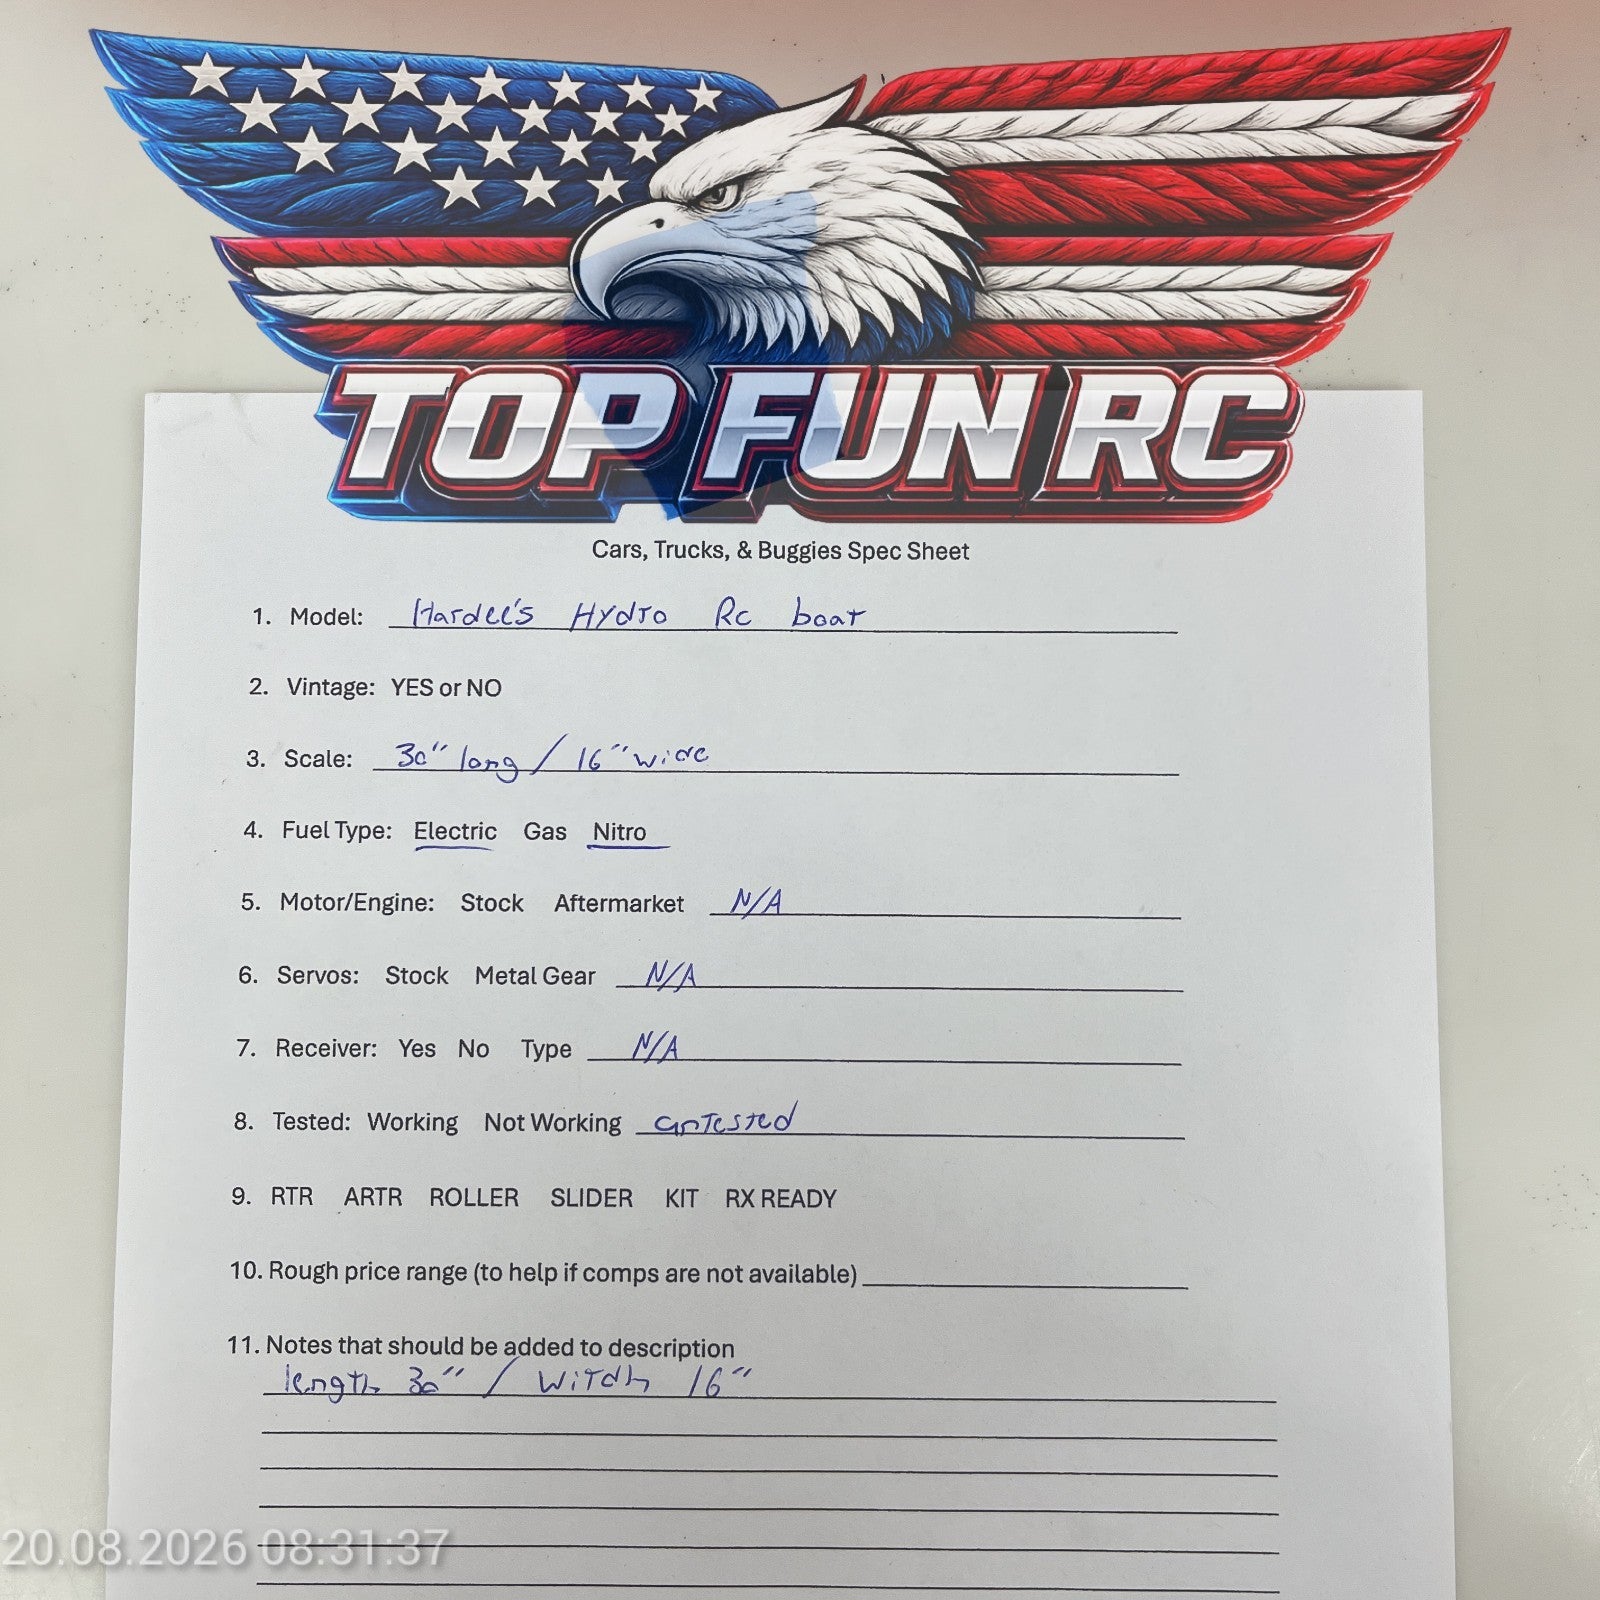 TOP FUN RC
Cars, Trucks, & Buggies Spec Sheet
1. Model: Hardee's Hydro Rc boat
2. Vintage: YES or NO
3. Scale: 30" long / 16" wide
4. Fuel Type: Electric Gas Nitro
5. Motor/Engine: Stock Aftermarket N/A
6. Servos: Stock Metal Gear N/A
7. Receiver: Yes No Type N/A
8. Tested: Working Not Working unTested
9. RTR ARTR ROLLER SLIDER KIT RX READY
10. Rough price range (to help if comps are not available)
11. Notes that should be added to description
length 30" / WiTdh 16"
20.08.2026 08:31:37